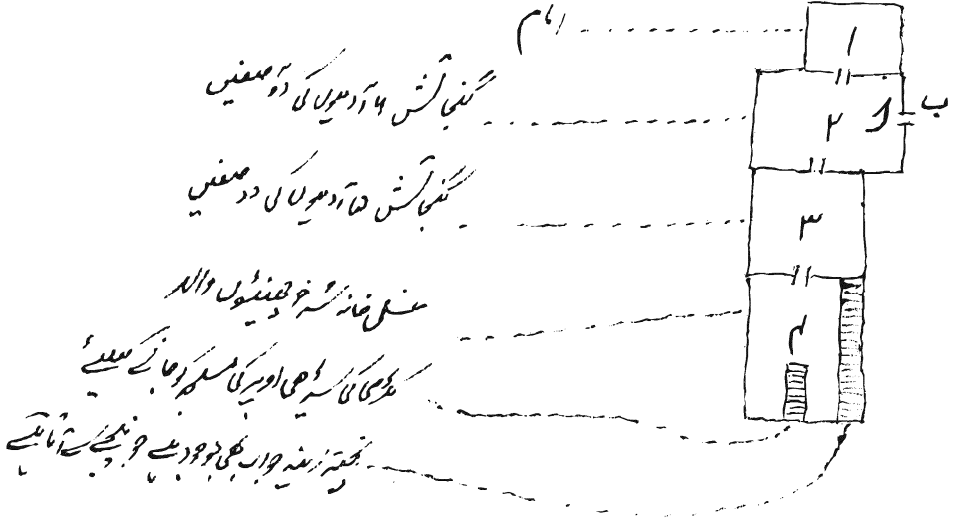 امام
گنجائش ۶ آدمیوں کی دو صفیں
گنجائش ۵ آدمیوں کی دو صفیں
غسل خانہ سرخ چھینٹوں والا
لکڑی کی سیڑھی اوپر کی جانے کیلئے
پختہ زینہ جو اب بھی موجود ہے جو نیچے سے آتا ہے
۱
۲
ب
۳
۴